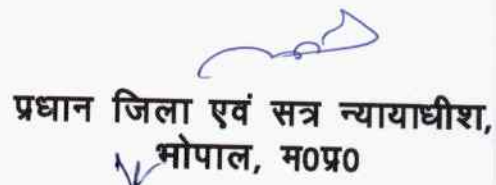 प्रधान जिला एवं सत्र न्यायाधीश,
भोपाल, म0प्र0